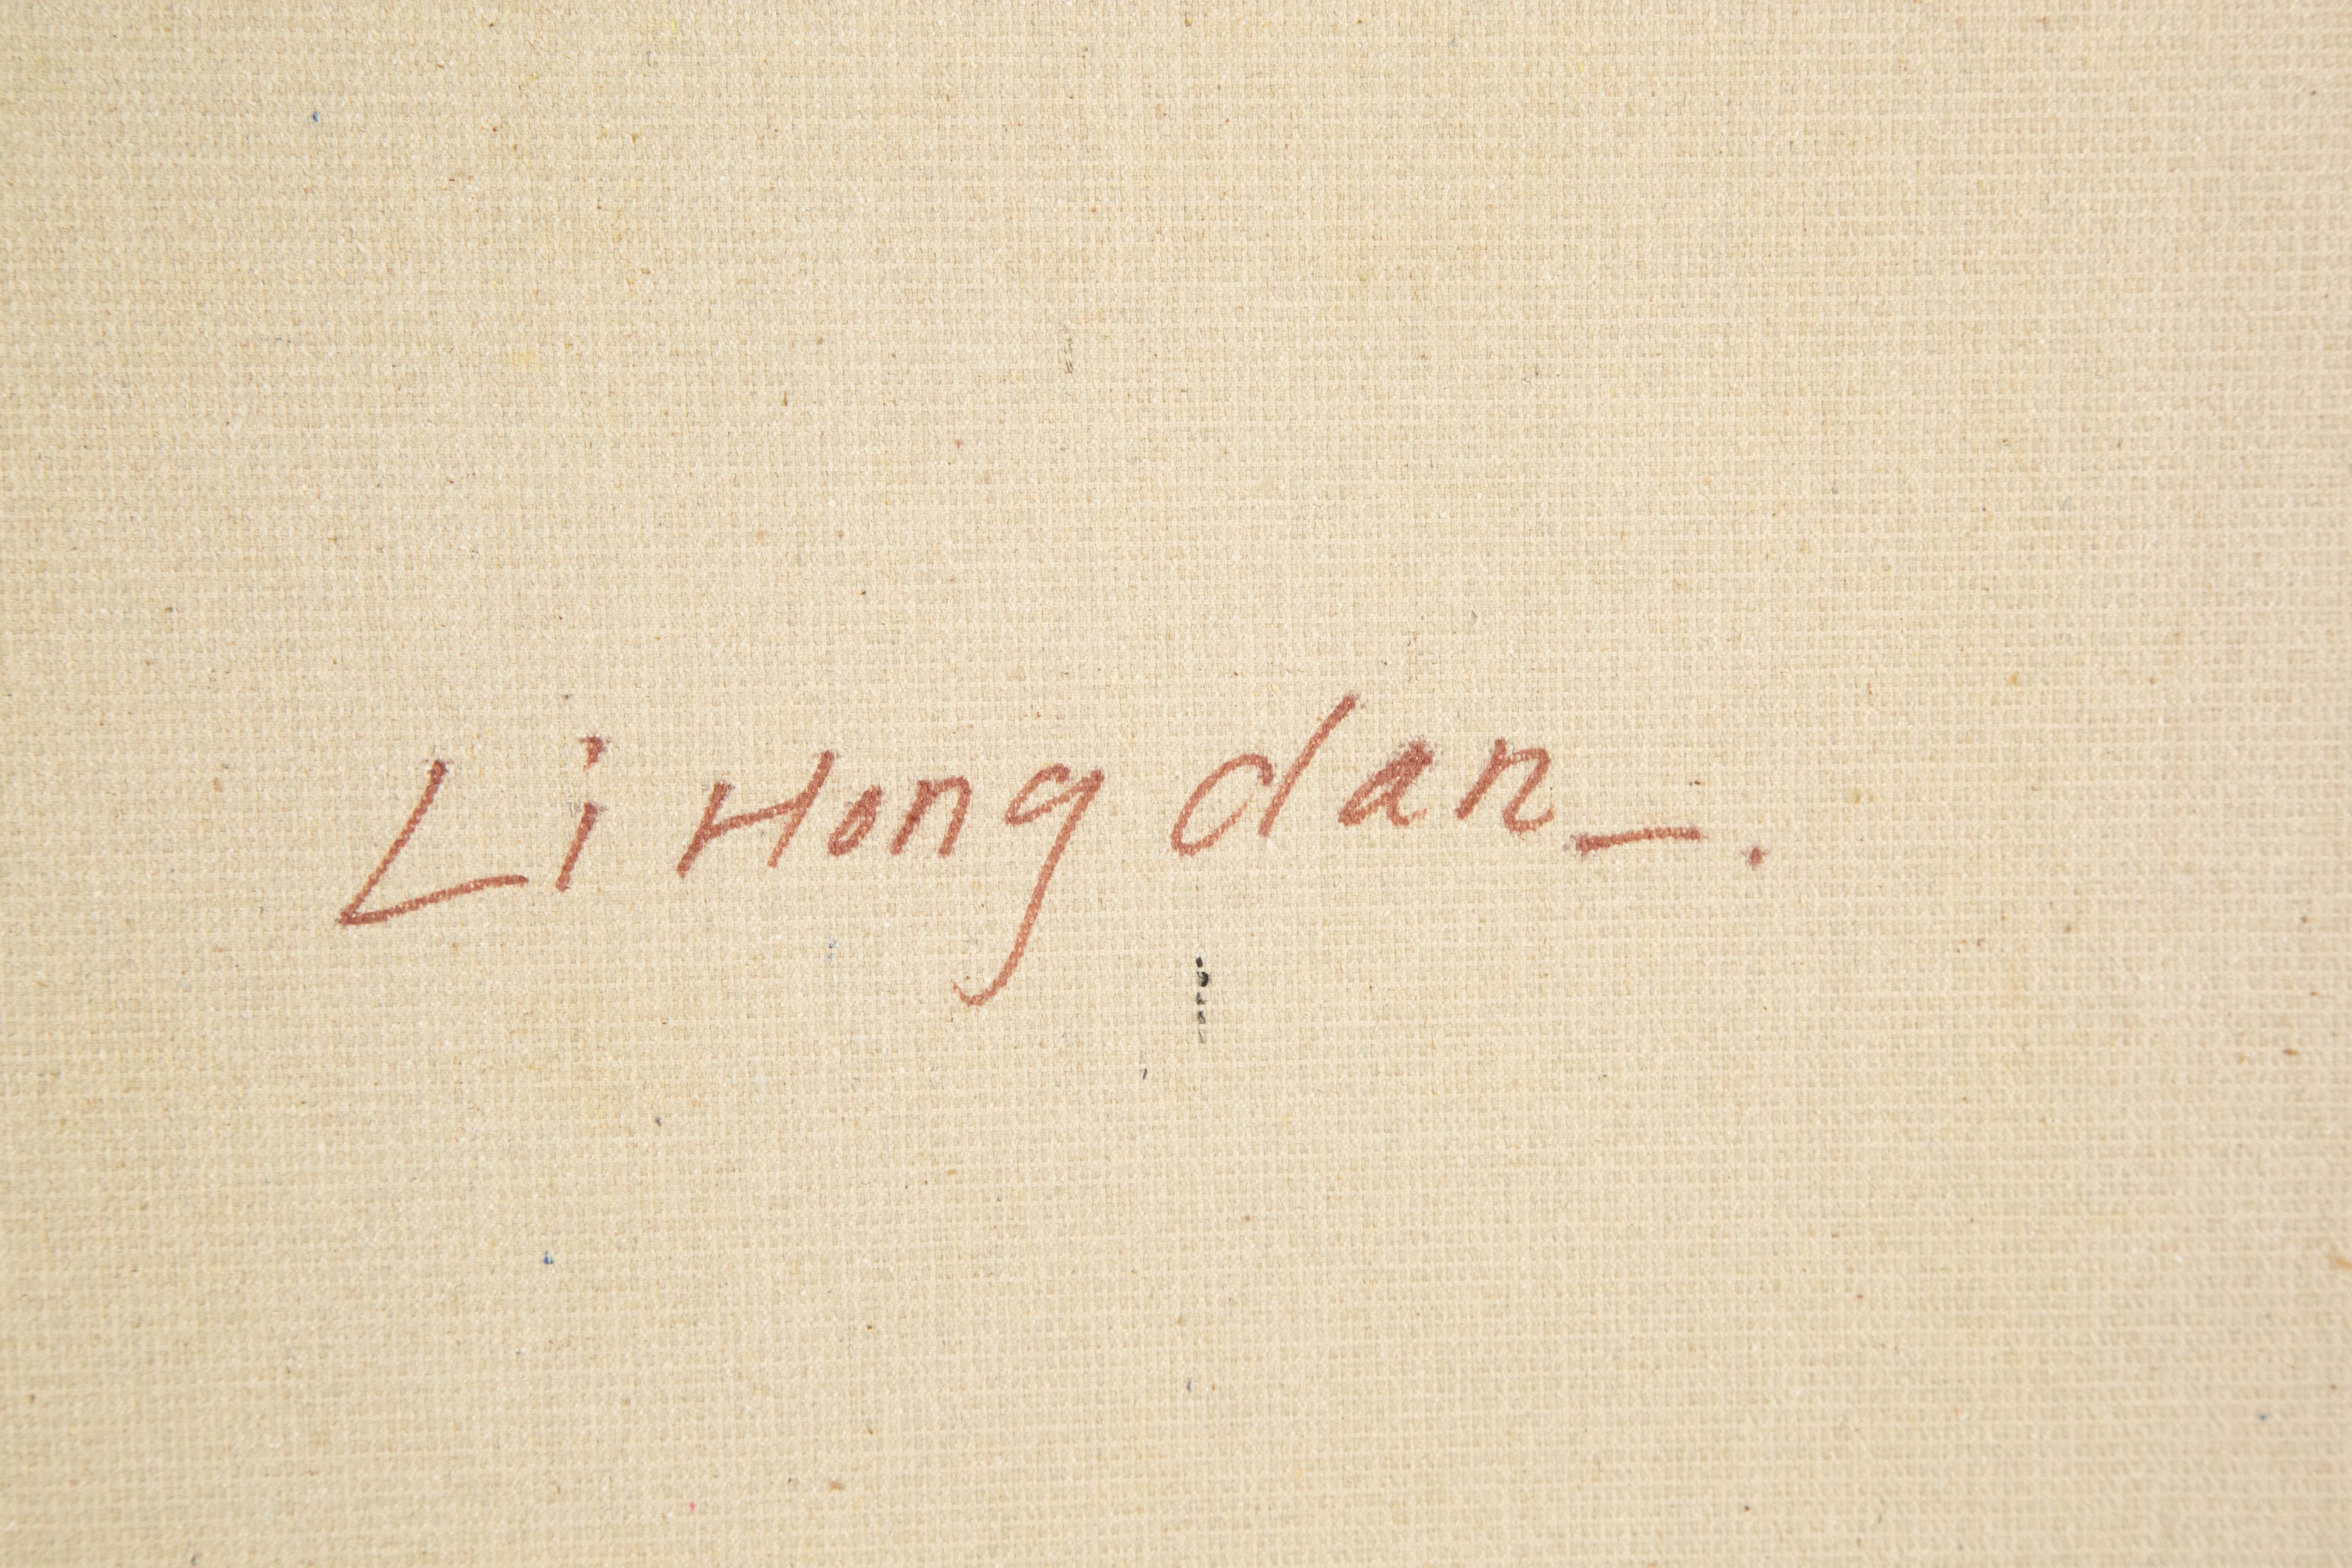 Li Hong dan_.